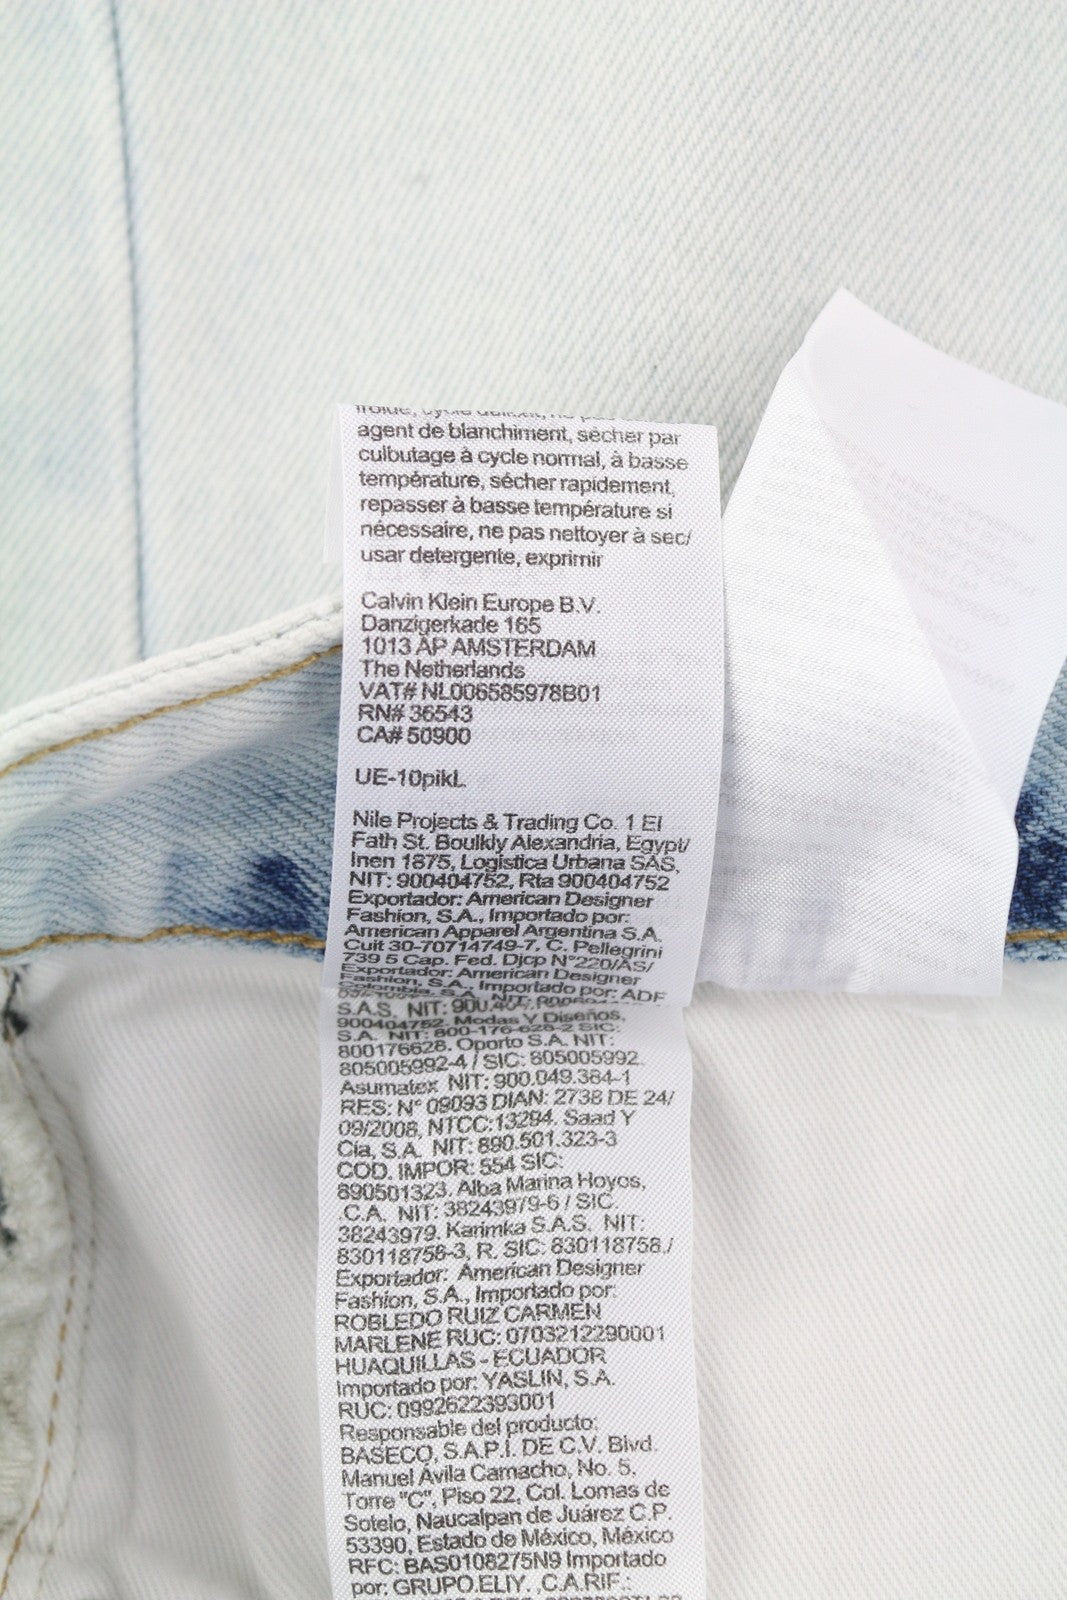 agent de blanchiment, sécher par
culbutage à cycle normal, à basse
température, sécher rapidement,
repasser à basse température si
nécessaire, ne pas nettoyer à sec/
usar detergente, exprimir
Calvin Klein Europe B.V.
Danzigerkade 165
1013 AP AMSTERDAM
The Netherlands
VAT# NL006585978B01
RN# 36543
CA# 50900
UE-10pikL
Nile Projects & Trading Co. 1 El
Fath St. Boulkly Alexandria, Egypt/
Inen 1875, Logistica Urbana SAS,
NIT: 900404752, Rta 900404752
Exportador: American Designer
Fashion, S.A., Importado por:
American Apparel Argentina S.A.
Cuit 30-70714749-7. C. Pellegrini
739 5 Cap. Fed. Djcp N°220/AS/
Exportador: American Designer
Fashion, S.A., Importado por: ADF
Colombia, S.A. NIT:
S.A.S. NIT:
900404752. Modas Y Diseños,
S.A. NIT: 800-176-628-2 SIC:
800176628. Oporto S.A. NIT:
805005992-4 / SIC: 805005992.
Asumatex NIT: 900.049.384-1
RES: N° 09093 DIAN: 2738 DE 24/
09/2008, NTCC:13294. Saad Y
Cia, S.A. NIT: 890.501.323-3
COD. IMPOR: 554 SIC:
890501323. Alba Marina Hoyos,
.C.A. NIT: 38243979-6 / SIC.
38243979. Karimka S.A.S. NIT:
830118758-3, R. SIC: 830118758./
Exportador: American Designer
Fashion, S.A., Importado por:
ROBLEDO RUIZ CARMEN
MARLENE RUC: 0703212290001
HUAQUILLAS - ECUADOR
Importado por: YASLIN, S.A.
RUC: 0992622393001
Responsable del producto:
BASECO, S.A.P.I. DE C.V. Blvd.
Manuel Ávila Camacho, No. 5,
Torre "C", Piso 22, Col. Lomas de
Sotelo, Naucalpan de Juárez C.P.
53390, Estado de México, México
RFC: BAS0108275N9 Importado
por: GRUPO.ELIY. ,C.A.RIF.: